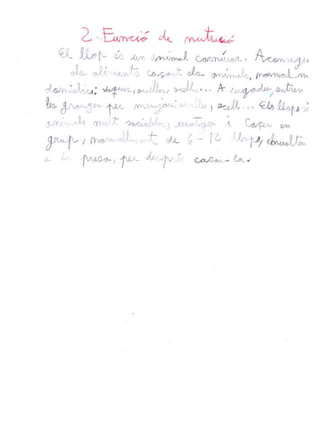 2-Funció de nutrició
El llop és un animal carnívor. Aconsegueix
els aliments caçant els animals, normalm
domèstics: vaques, ovelles, ocells... A vegades, entren
les granges per menjar: ovelles, ocell... Els llops só
animals molt sociables, i caçen en
grup, normalment de 6-12 llops,
a la presa, per després caçar-la.